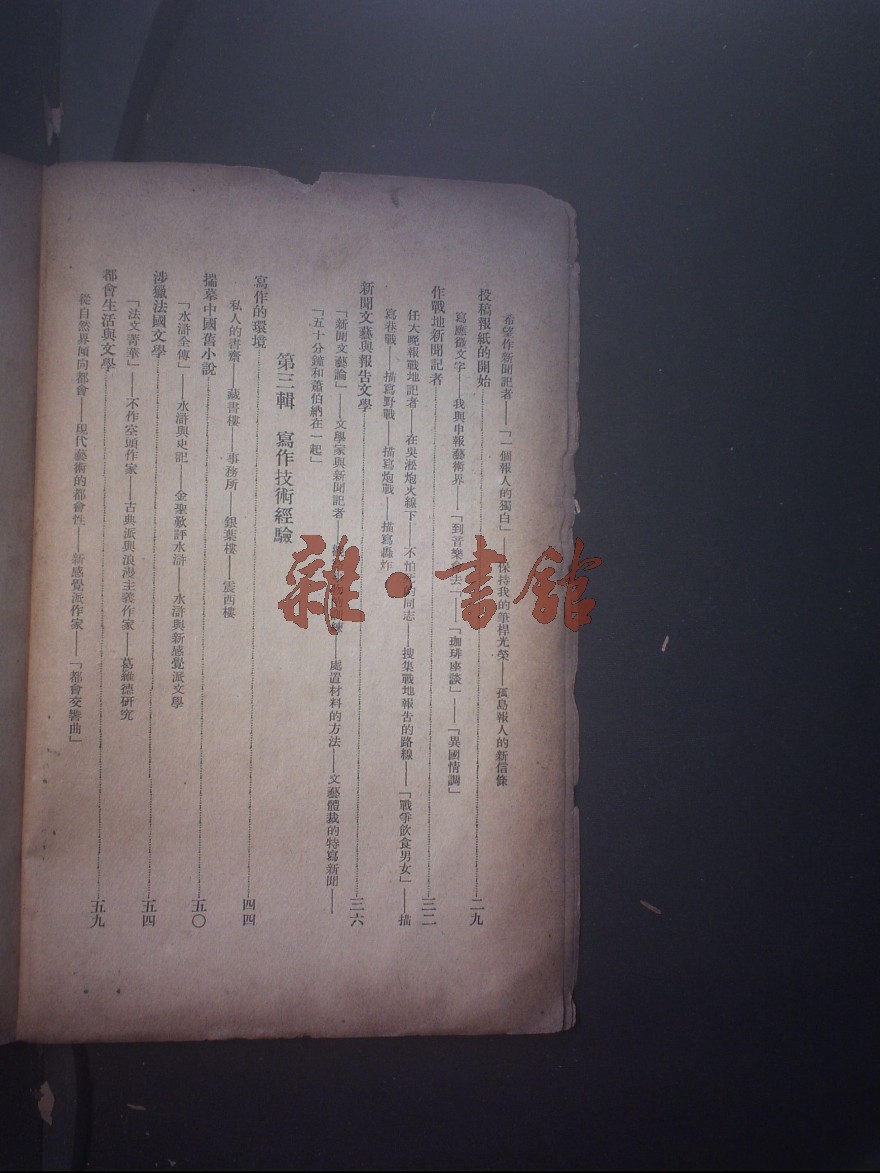 希望作新聞記者——「一個報人的獨白」——保持我的筆桿光榮——孤島報人的新信條
投稿報紙的開始二九
寫應徵文字——我與申報藝術界——「到音樂會去」——「珈琲座談」——「異國情調」
作戰地新聞記者三二
任大晚報戰地記者——在吳淞炮火線下——不怕死的同志——搜集戰地報告的路線——「戰爭飲食男女」——描
寫巷戰——描寫野戰——描寫炮戰——描寫轟炸
新聞文藝與報告文學三六
「新聞文藝論」——文學家與新聞記者——處置材料的方法——文藝體裁的特寫新聞——
「五十分鐘和蕭伯納在一起」
第三輯 寫作技術經驗
寫作的環境四四
私人的書齋——藏書樓——事務所——銀葉樓——震西樓
揣摹中國舊小說五〇
「水滸全傳」——水滸與史記——金聖歎評水滸——水滸與新感覺派文學
涉獵法國文學五四
「法文菁華」——不作空頭作家——古典派與浪漫主義作家——葛羅德研究
都會生活與文學五九
從自然界傾向都會——現代藝術的都會性——新感覺派作家——「都會交響曲」
雜·書館